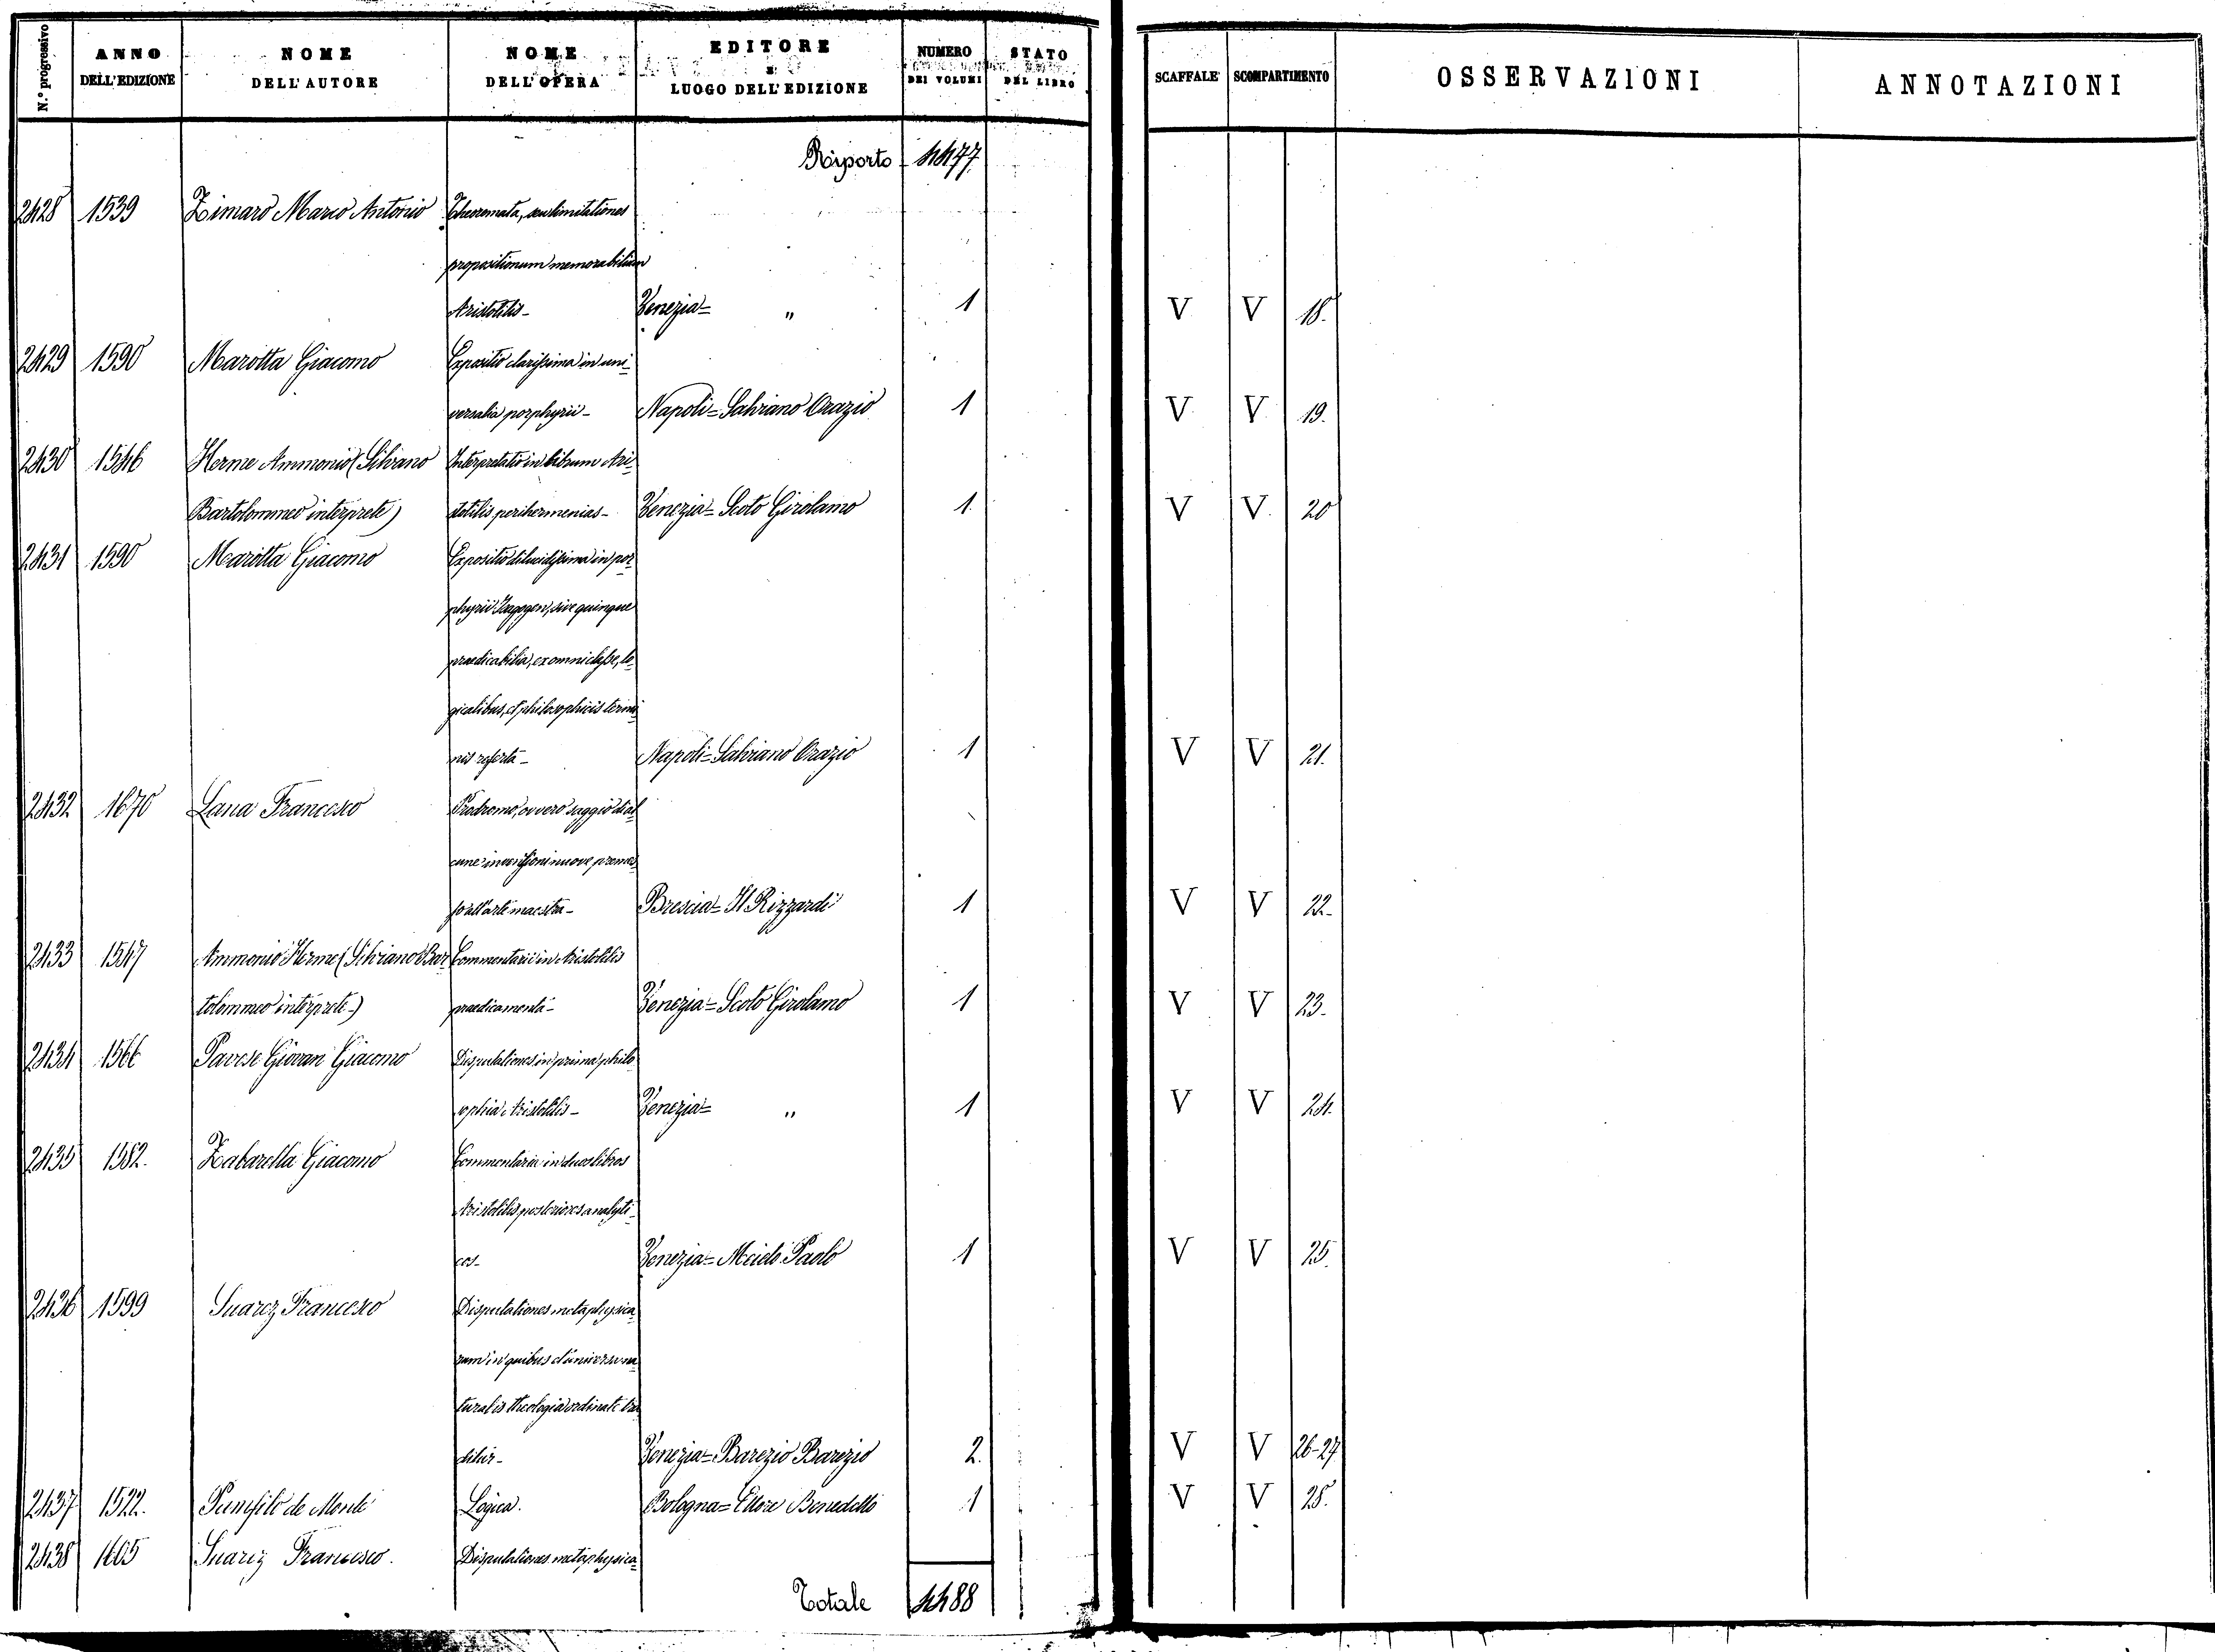 N.° progressivo ANNO DELL'EDIZIONE NOME DELL'AUTORE NOME DELL'OPERA EDITORE E LUOGO DELL'EDIZIONE NUMERO DEI VOLUMI STATO DEL LIBRO SCAFFALE SCOMPARTIMENTO OSSERVAZIONI ANNOTAZIONI
Riporto 4477
2428 1539 Zimara Marco Antonio Theoremata, seu limitationes
propositionum memorabilium
Aristotilis - Venezia = " 1 V V 18.
2429 1590 Marotta Giacomo Expositio clarissima in uni-
versalia porphyrii - Napoli = Salviano Orazio 1 V V 19.
2430 1546 Herme Ammonio (Silvano Interpretatio in librum Ari-
Bartolommeo interprete) stotilis perihermenias - Venezia = Scoto Girolamo 1. V V. 20
2431 1590 Marotta Giacomo Expositio dilucidissima in por-
phyrii Isagogen, sive quinque
praedicabilia, ex omni classe, lo-
gicalibus, et philosophicis termi-
nis referta - Napoli = Salviano Orazio 1 V V 21.
2432 1670 Lana Francesco Prodromo, ovvero saggio di al-
cune invenzioni nuove premes-
so all'arte maestra - Brescia = Rizzardi 1 V V 22.
2433 1547 Ammonio Herme (Silvano Bar- Commentarii in Aristotilis
tolommeo interprete -) praedicamenta - Venezia = Scoto Girolamo 1 V V 23.
2434 1566 Pavese Giovan Giacomo Disputationes in prima philo-
sophia Aristotilis - Venezia = " 1 V V 24.
2435 1582. Zabarella Giacomo Commentaria in duos libros
Aristotilis posteriores analyti-
cos - Venezia = Paolo 1 V V 25.
2436 1599 Suarez Francesco Disputationes metaphysica-
rum in quibus et universa na-
turalis theologia ordinate tra-
ditur - Venezia = Barezio Barezio 2. V V 26-27
2437 1522. Panfilo de Monte Logica. Bologna = Ettore Benedetto 1 V V 28.
2438 1605 Suarez Francesco. Disputationes metaphysica=
Totale 4488